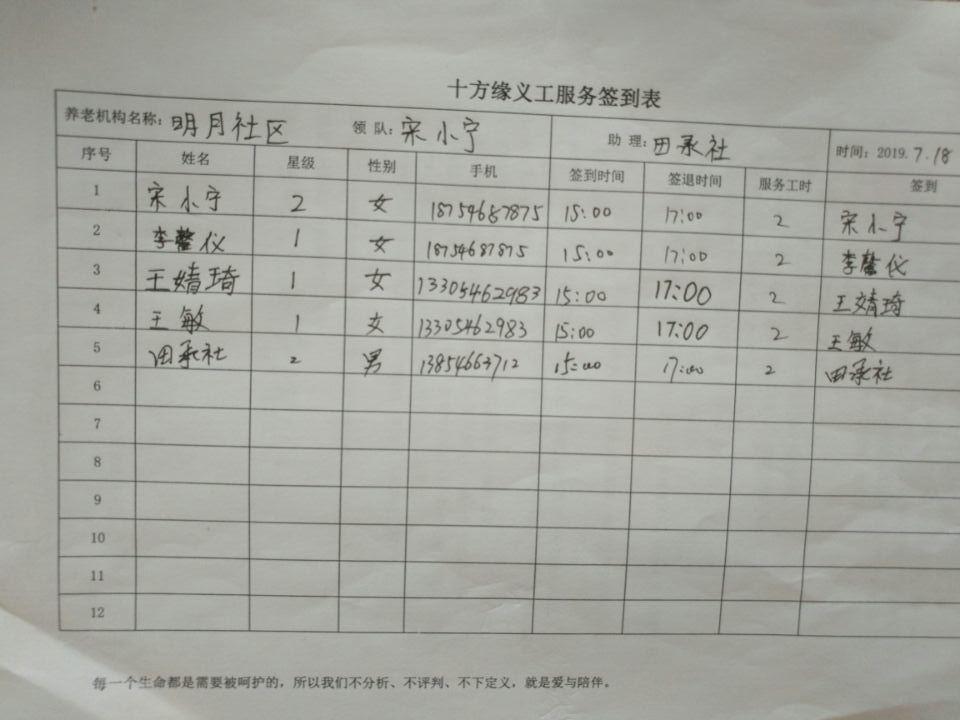 十方缘义工服务签到表
养老机构名称: 明月社区 领 队: 宋小宁 助 理: 田承社 时间: 2019.7.18
序号 姓名 星级 性别 手机 签到时间 签退时间 服务工时 签到
1 宋小宁 2 女 18754687875 15:00 17:00 2 宋小宁
2 李馨仪 1 女 18754687875 15:00 17:00 2 李馨仪
3 王婧琦 1 女 13305462983 15:00 17:00 2 王婧琦
4 王敏 1 女 13305462983 15:00 17:00 2 王敏
5 田承社 2 男 13854663712 15:00 17:00 2 田承社
6
7
8
9
10
11
12
每一个生命都是需要被呵护的，所以我们不分析、不评判、不下定义，就是爱与陪伴。